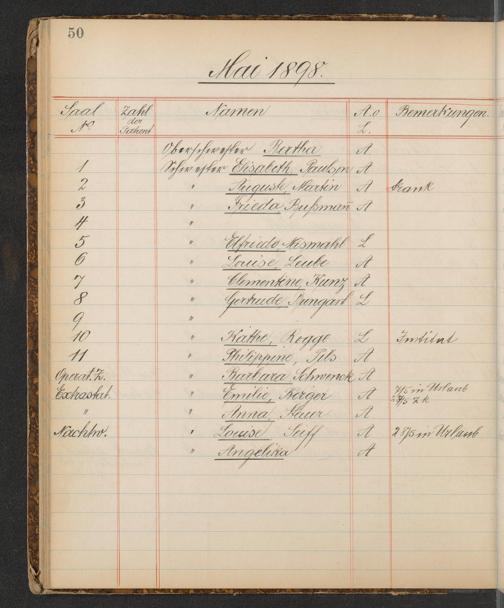 50
Mai 1898.
Saal No Zahl der Namen A. o L. Bemerkungen
Oberschwester Bertha A
1 Schwester Elisabeth, Paulsen A
2 " Auguste, Martin A krank
3 " Frieda, Bußmann A
4 "
5 " Elfriede, L
6 " Louise, Leube A
7 " Clementine, Kunz A
8 " Gertrude, L
9 "
10 " Käthe, Rogge L Institut
11 " Philippine, Tils A
Operat. Z. " Barbara Schwenck A
Extrastat. " Emilie, A in Urlaub
" " Anna, A
Nachtw. " Louise, Seiff A in Urlaub
" Angelika A